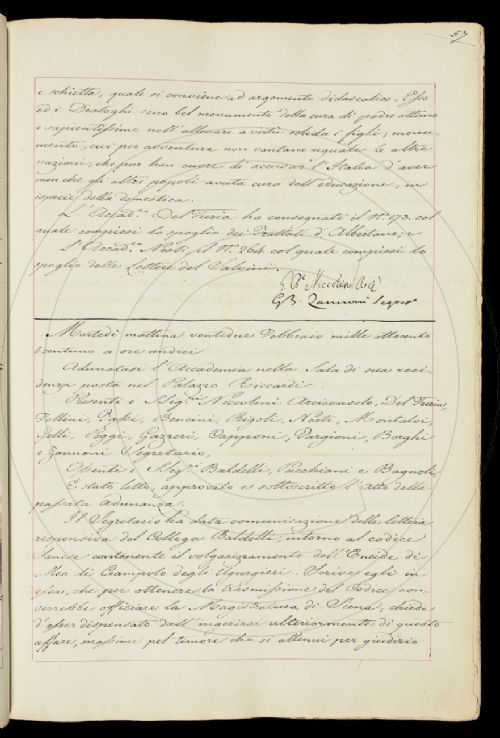 57
e schietta, quale si conviene ad argomento didascalico. Esso
ed i Dialoghi sono bel monumento della cura di padre ottimo
e sapientissimo nell'allevare a virtù solida i figli; monu-
mento, cui per avventura non vantano uguale le altre
nazioni, che pur han cuore di accusar l'Italia d'aver
men che gli altri popoli avuta cura dell'educazione, in
ispecie della domestica.
L'Accad.co Del Furia ha consegnati il N.o 173. col
quale compiesi lo spoglio dei Trattati d'Albertano; e
l'Accad.co Nesti il N.o 264 col quale compiesi lo
spoglio delle Lettere del Salvini.
Niccolini
G.B. Zannoni Segret.o
Martedì mattina ventidue Febbraio mille ottocento
trentuno a ore undici
Adunatasi l'Accademia nella Sala di sua resi
denza posta nel Palazzo Riccardi
Presenti i Sigg.ri Niccolini Arciconsolo, Del Furia,
Follini, Papi, Bencini, Rigoli, Nesti, Montalvi,
Gelli, Poggi, Gazzeri, Capponi, Targioni, Borghi
e Zannoni Segretario,
Assenti i Sigg.ri Baldelli, Pacchiani e Bagnoli
È stato letto, approvato e sottoscritto l'Atto della
passata adunanza.
Il Segretario ha data comunicazione della lettera
responsiva del Collega Baldelli, intorno al codice
Sanese contenente il volgarizzamento dell'Eneide di
Meo di Ciampolo degli Ugurgieri. Scrive egli in
essa, che per ottenere la trasmissione del Codice, con-
verrebbe officiare la Magistratura di Siena, chiede
d'esser dispensato dall'incaricarsi ulteriormente di questo
affare, massime pel timore che si attenui per giudizio